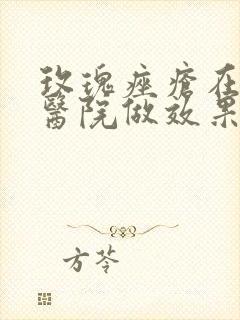 玫瑰痤瘡在
醫院做效果
方苓